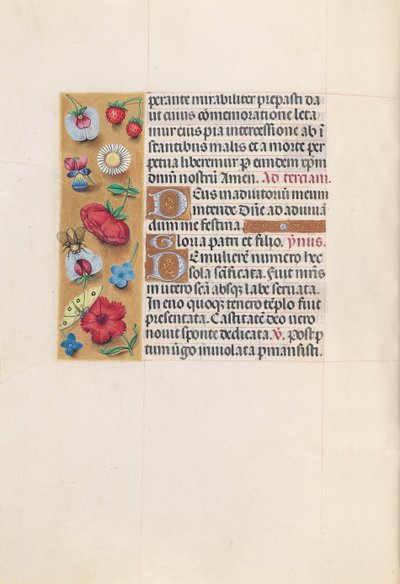 perante mirabiliter preparasti da
ut cuius cōmemoratione leta
mur eius pia intercessione ab ī
stantibus malis et a morte per
petua liberemur p eundem xp̄m
dnm̄ nostrū Amen. Ad terciam.
Deus in adiutoriū meum
intende Dn̄e ad adiuvā
dum me festina.
Gloria patri et filio. ymnus.
De mulierē numero hec
sola sc̄ificata. Fuit mr̄is
in utero sc̄a absq̄ labe servata.
In evo quoq̄ tenero tēplo fuit
presentata. Castitatē deo vero
novit sponte dedicata. V. Post p
tum v̄go inviolata pmansisti.